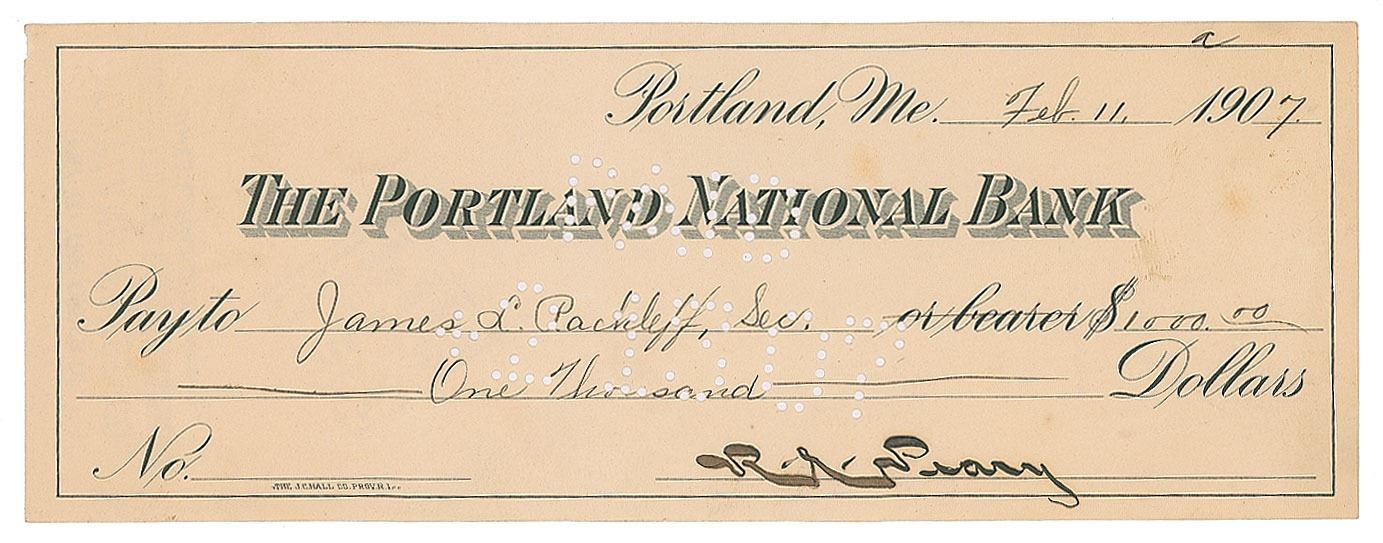 a
Portland, Me. Feb. 11, 1907.
THE PORTLAND NATIONAL BANK
Pay to James L. Rackleff, Sec. or bearer $1000.00
One Thousand Dollars
No.
THE J.C. HALL CO. PROV. R.I.
R. E. Peary